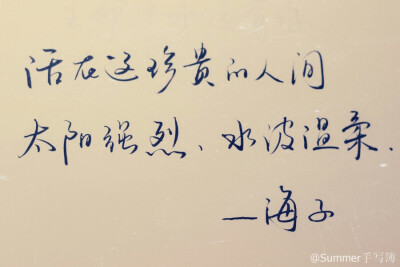 活在这珍贵的人间
太阳强烈、水波温柔.
—海子
@Summer手写簿